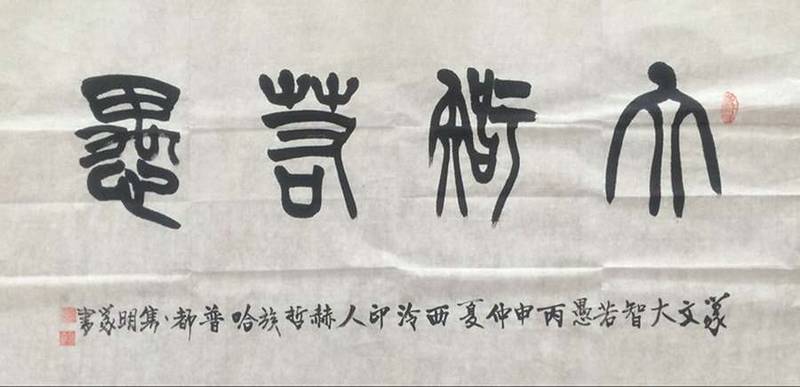 大智若愚
篆文大智若愚丙申仲夏西泠印人赫哲族哈普都·隽明篆书